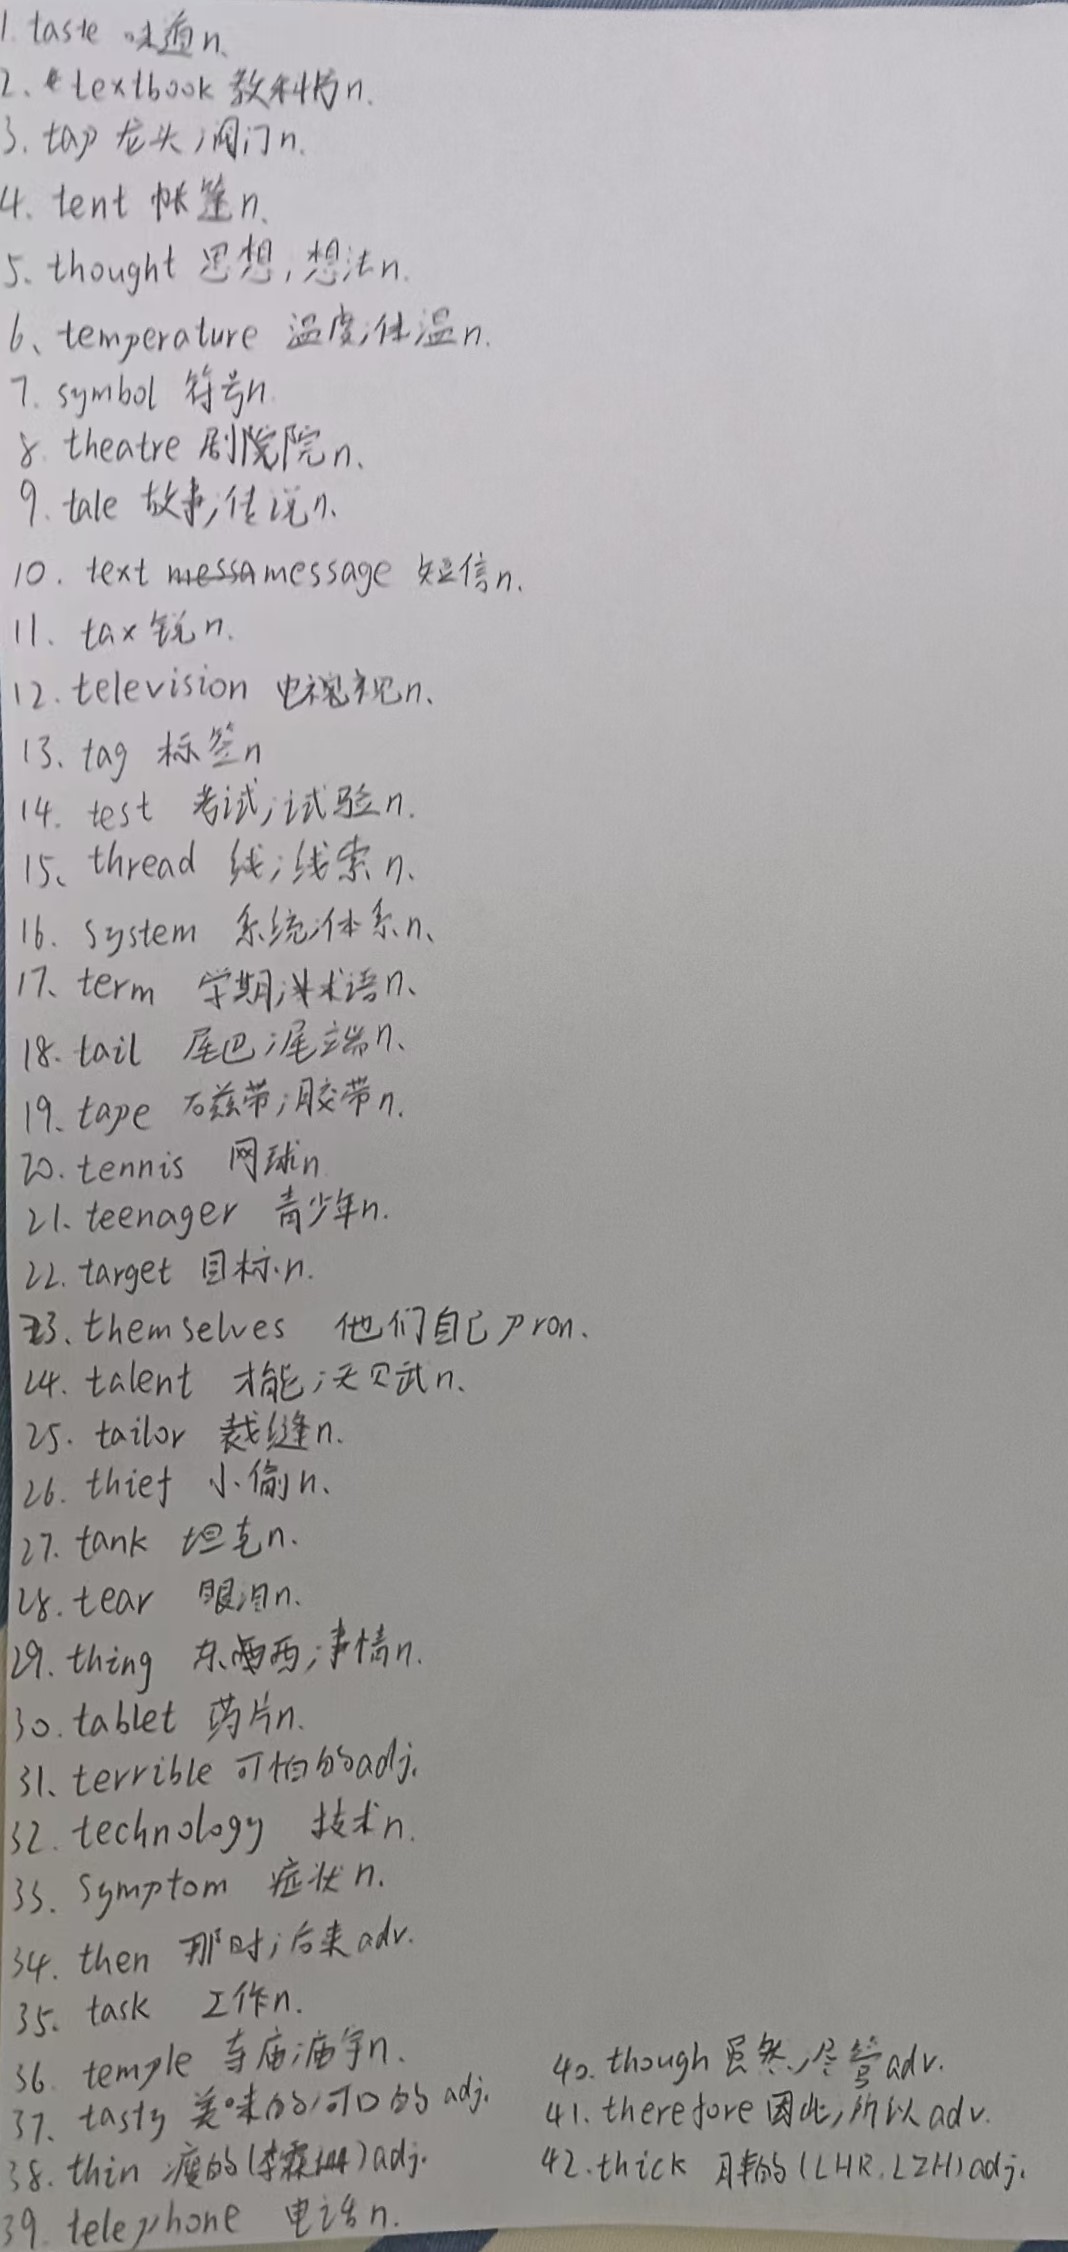 1. taste 味道n.
2. textbook 教科书n.
3. tap 龙头;阀门n.
4. tent 帐篷n.
5. thought 思想,想法n.
6. temperature 温度;体温n.
7. symbol 符号n.
8. theatre 剧院n.
9. tale 故事;传说n.
10. text message 短信n.
11. tax 税n.
12. television 电视n.
13. tag 标签n
14. test 考试;试验n.
15. thread 线;线索n.
16. system 系统;体系n.
17. term 学期;术语n.
18. tail 尾巴;尾端n.
19. tape 磁带;胶带n.
20. tennis 网球n
21. teenager 青少年n.
22. target 目标n.
23. themselves 他们自己pron.
24. talent 才能;天赋n.
25. tailor 裁缝n.
26. thief 小偷n.
27. tank 坦克n.
28. tear 眼泪n.
29. thing 东西;事情n.
30. tablet 药片n.
31. terrible 可怕的adj.
32. technology 技术n.
33. symptom 症状n.
34. then 那时;后来adv.
35. task 工作n.
36. temple 寺庙;庙宇n.
37. tasty 美味的;可口的adj.
38. thin 瘦的(李霖)adj.
39. telephone 电话n.
40. though 虽然;尽管adv.
41. therefore 因此;所以adv.
42. thick 胖的(LHR.LZH)adj.